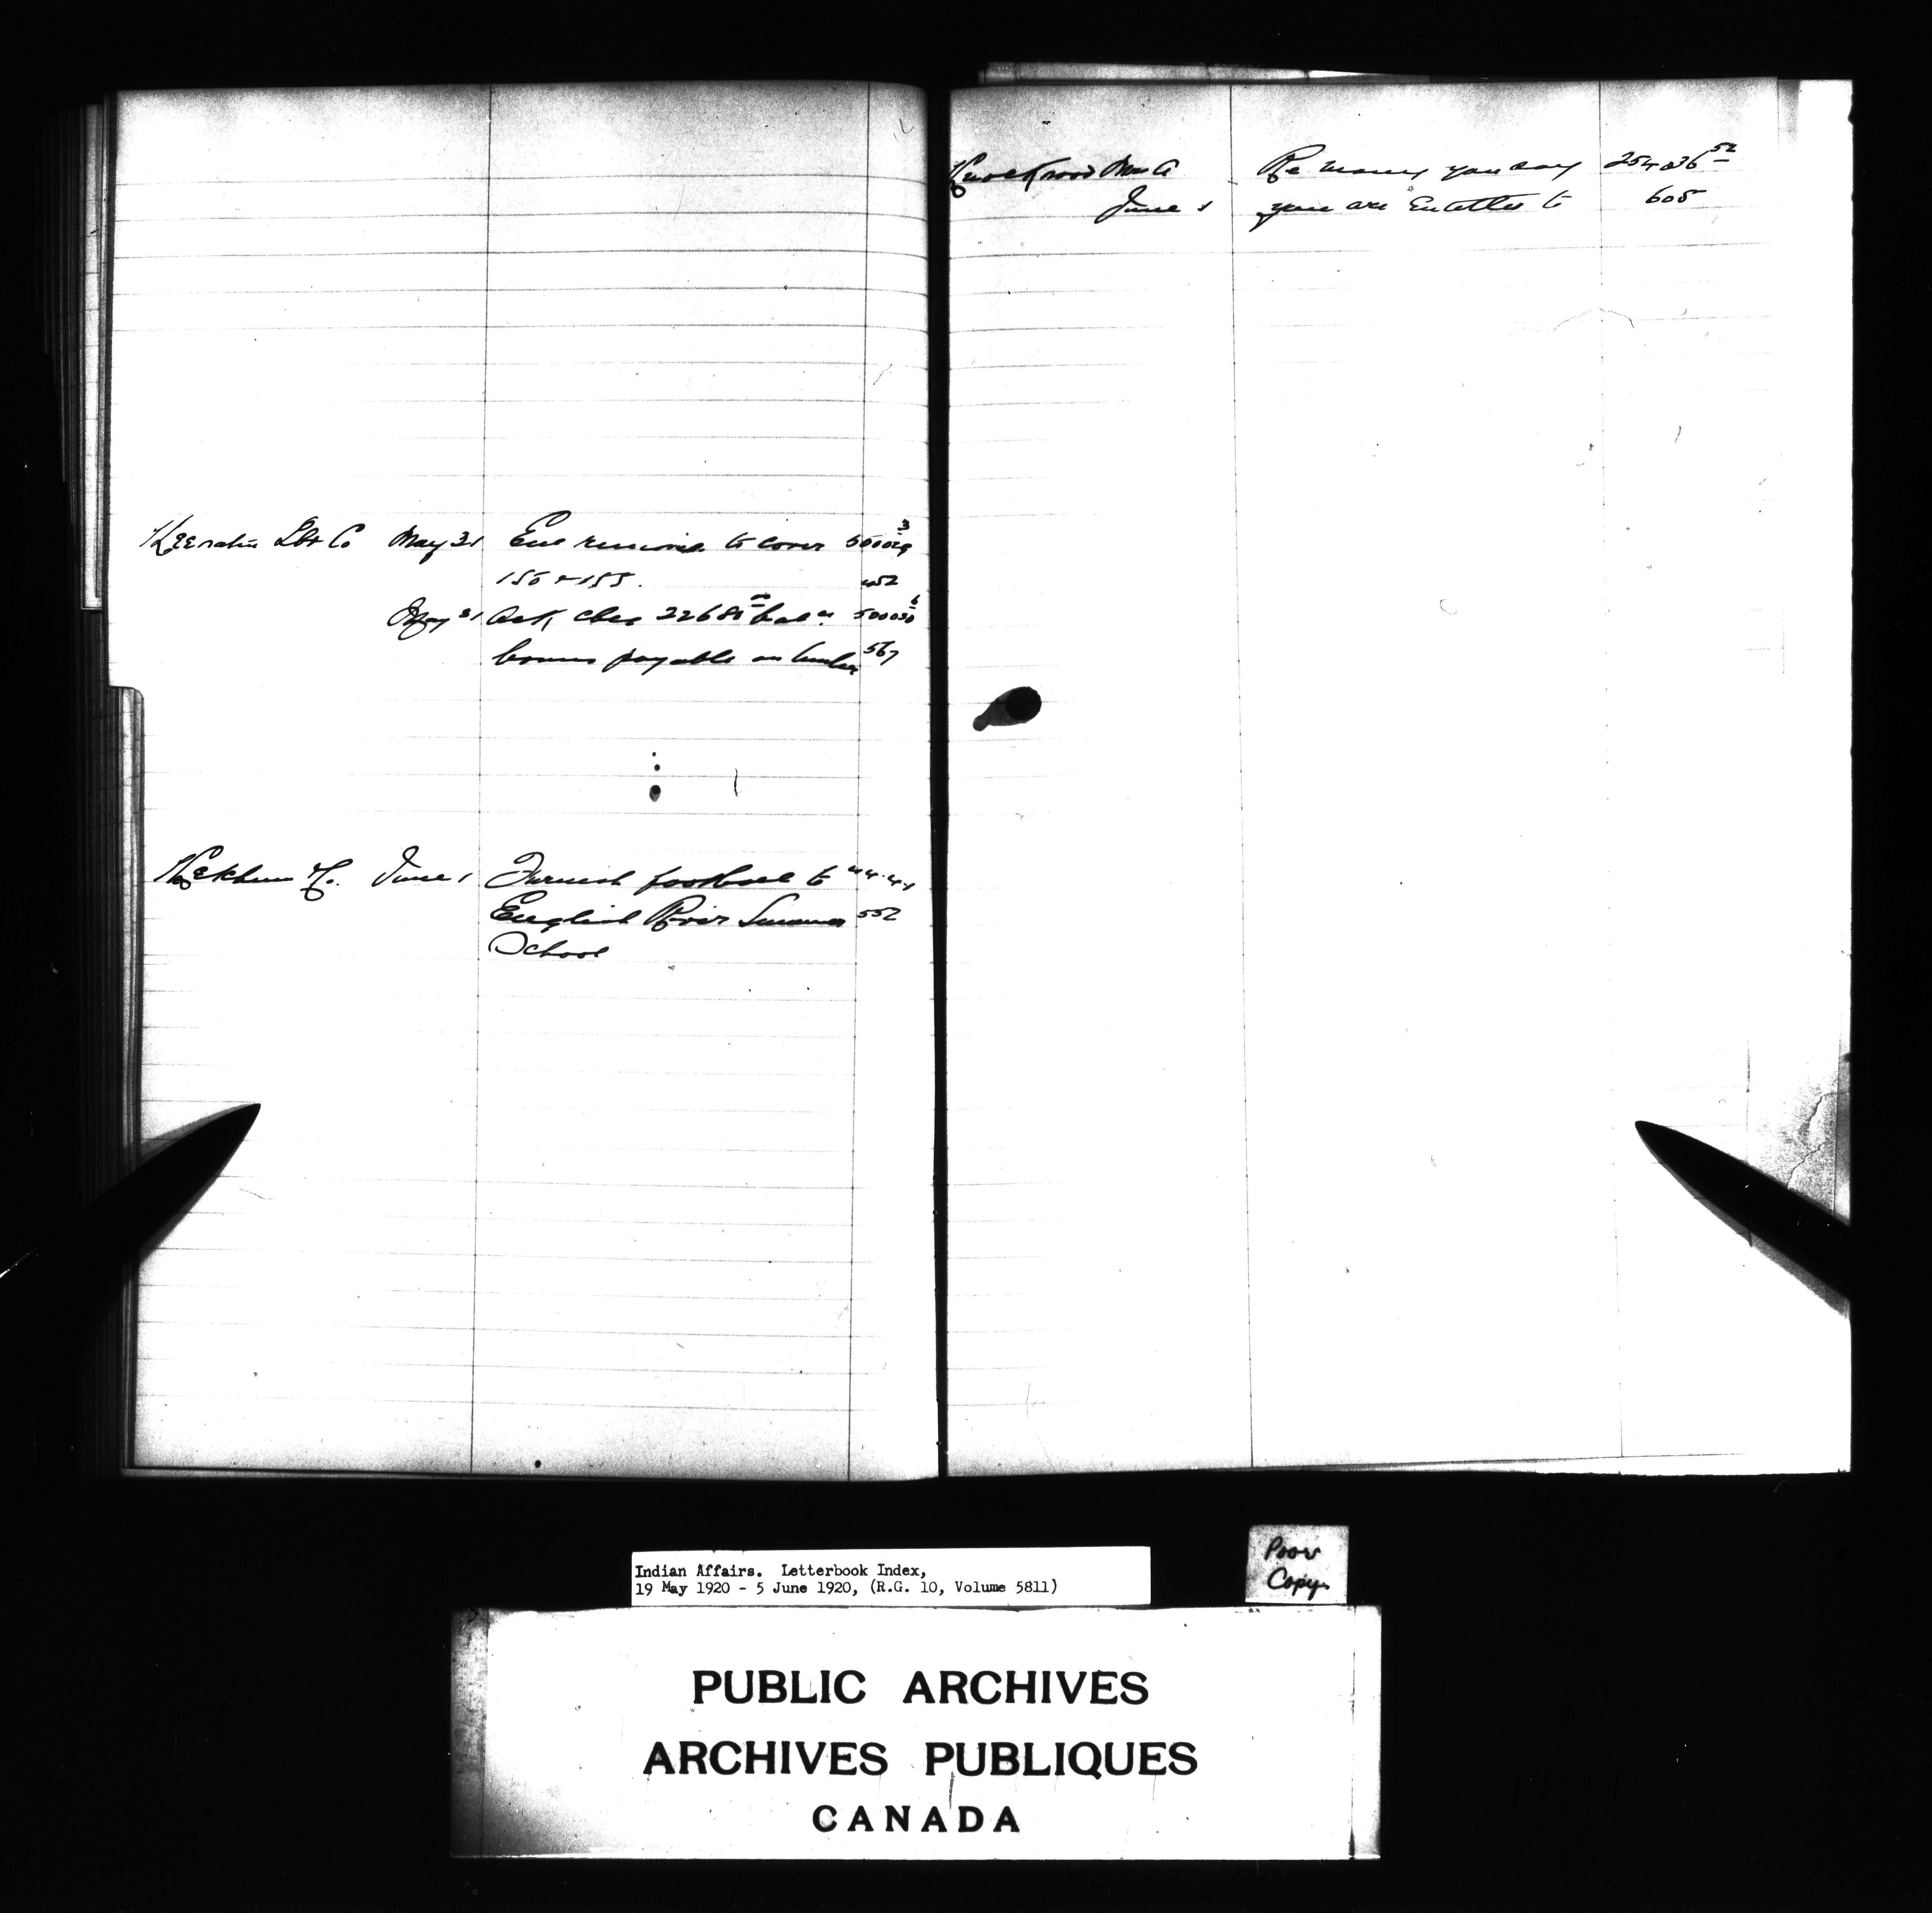 Keewatin Lbr Co May 31 Enc renewal to cover 50002 9 3
150 & 155. 452
May 31 Ask chec 22680 00 bal 500030 6
bonus payable on timber 567
Ketchum Co. June 1 Furnish football to 44.4.1
English River Summer 552
School
Mrs A Re money you say 254236 52
June 1 you are Entitled to 605
Indian Affairs. Letterbook Index,
19 May 1920 - 5 June 1920, (R.G. 10, Volume 5811)
Poor
Copy.
PUBLIC ARCHIVES
ARCHIVES PUBLIQUES
CANADA